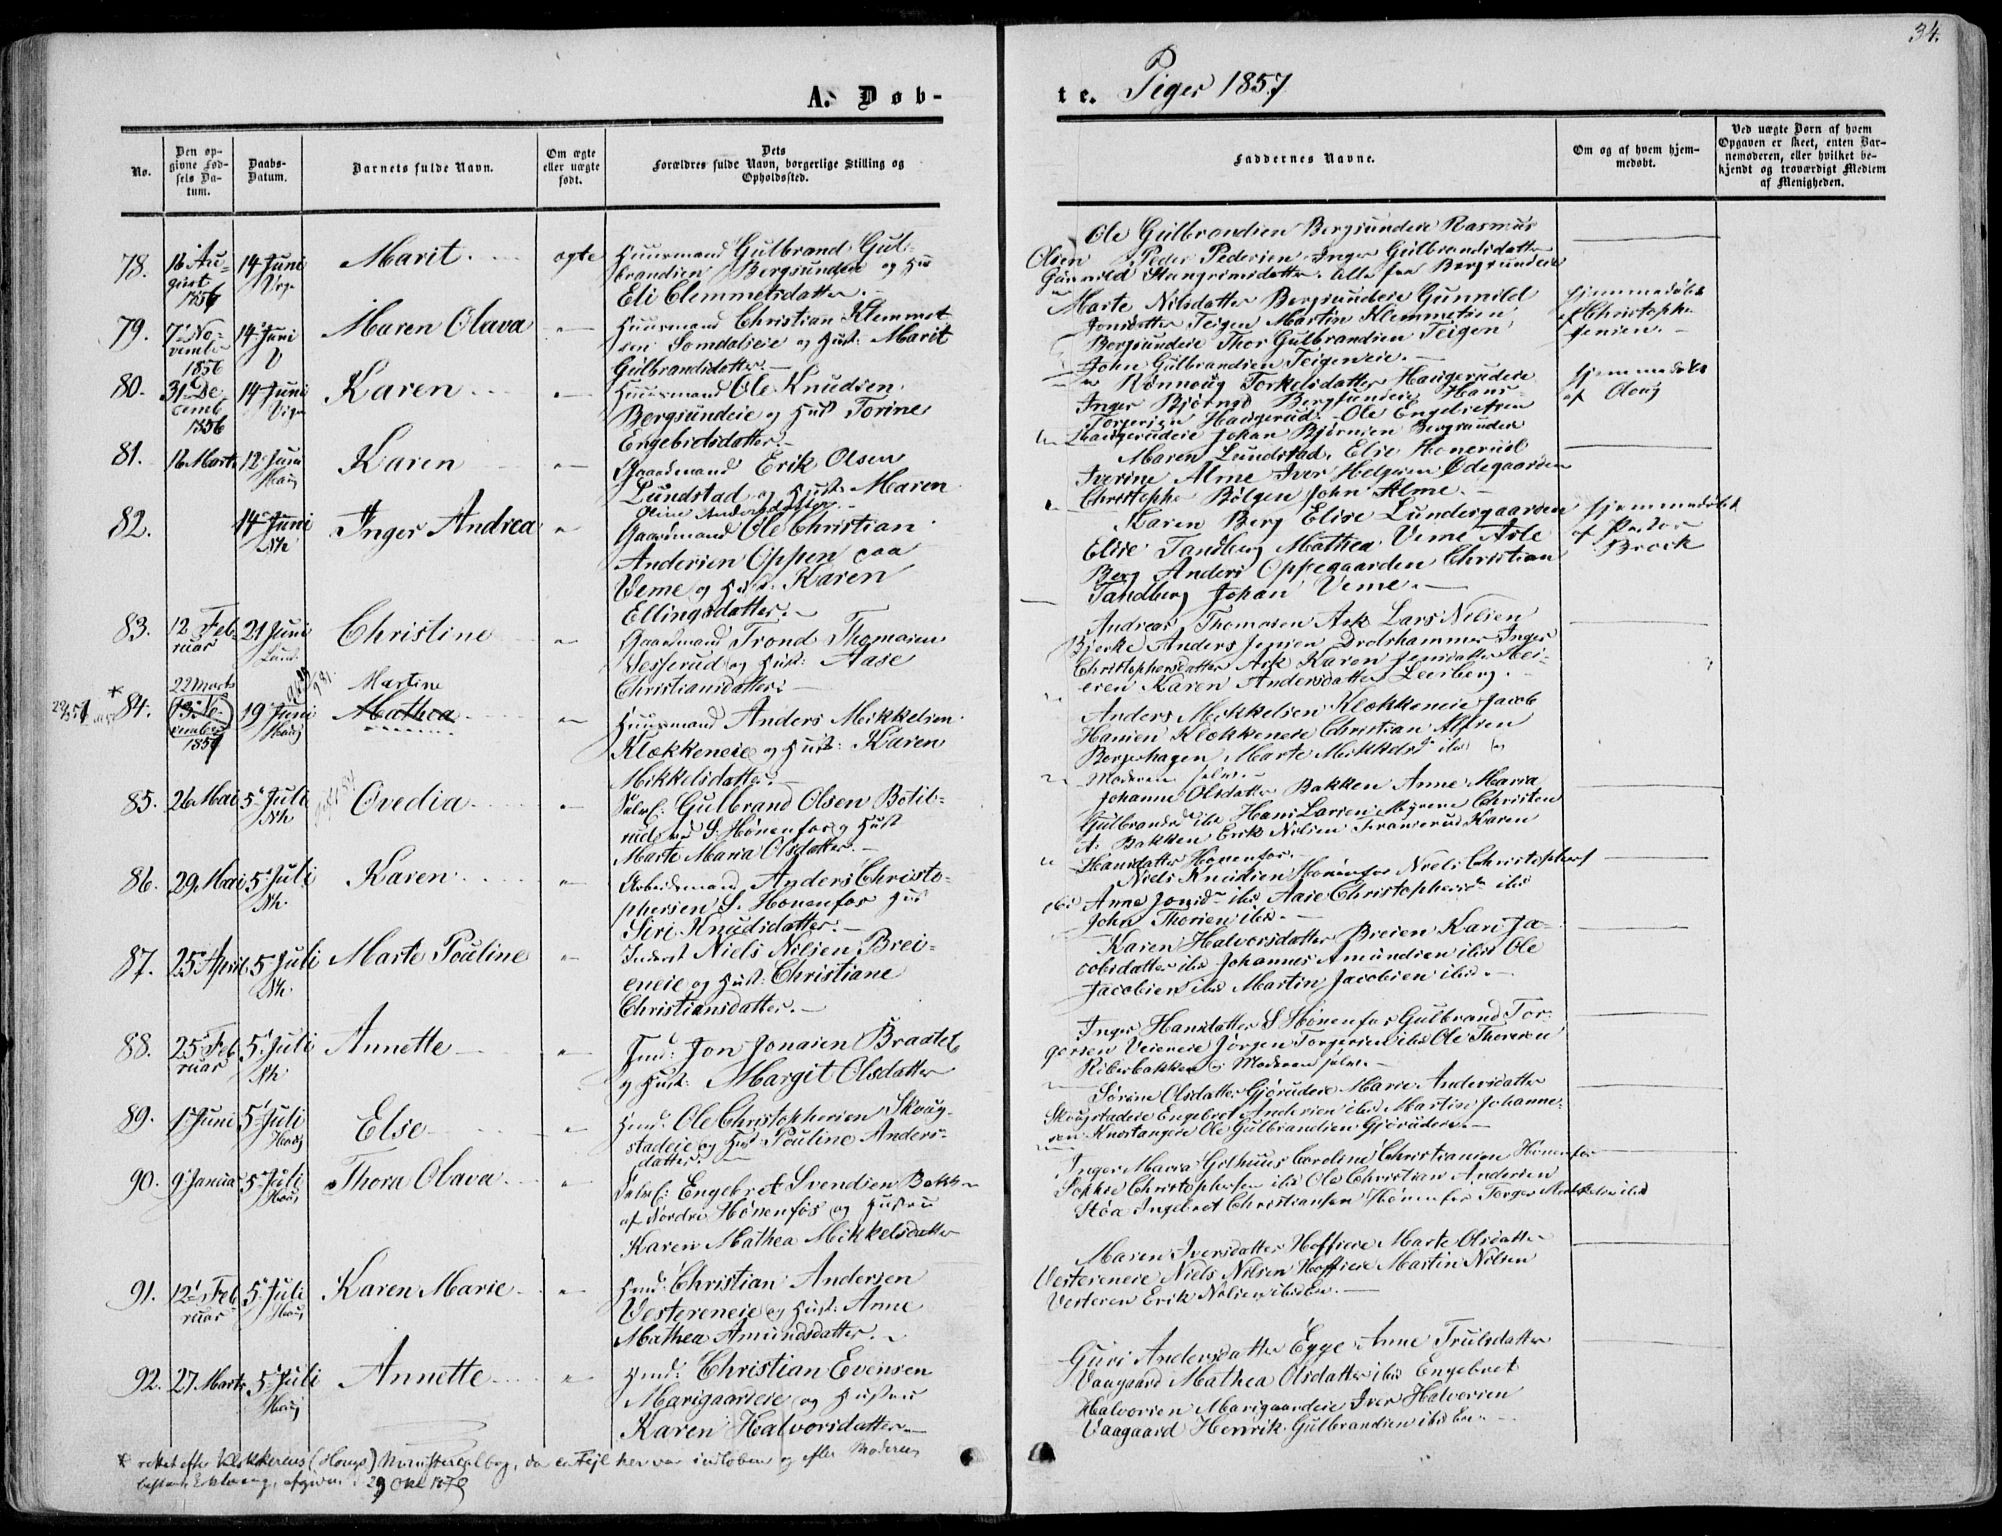 34.
A. Døb-
te. Piger 1857
No.
Den op-
givne Fød-
sels Da-
tum.
Daabs-
Datum.
Barnets fulde Navn.
Om ægte
eller uægte
født.
Dets
Forældres fulde Navn, borgerlige Stilling og
Opholdssted.
Faddernes Navne.
Om og af hvem hjem-
medøbt.
Ved uægte Børn af hvem
Opgaven er skeet, enten Bar-
nemoderen, eller hvilket be-
kjendt og troværdigt Medlem
af Menigheden.
78.
16 Au-
gust
1856
14 Juni
Marit.
ægte
Huusmand Gulbrand Gul-
brandsen Bergsundeie og Hus
Eli Clemmetsdatter.
Ole Gulbrandsen Bergsundeie Rasmus
Olsen Peder Pedersen Inger Gulbrandsdatter
Gunnild Hangrimsdatter. Alle fra Bergsundeie
79.
7 No-
vember
1856
14 Juni
Maren Olava
Huusmand Christian Klemmet-
sen Somdaleie og Hust: Marit
Gulbrandsdatter.
Marte Nilsdatter Bergsundeie Gunnild
Jonsdatter Teigen Martin Klemmetsen
Bergsundeie Thor Gulbrandsen Teigen
John Gulbrandsen Teigeneie.
hjemmedøbt
af Christophe
Jensen.
80.
31 De-
cemb
1856
14 Juni
Viger
Karen
Huusmand Ole Knudsen
Bergsundeie og Hust Torine
Engebretsdatter.
Rønnoug Torkelsdatter Haugerudeie
Inger Bjørnsd Bergsundeie Hans
Torgersen Haugerud. Ole Engebretsen
Haugerudeie Johan Bjørnsen Bergsundeie
hjemmedøbt
af
81.
16 Marts
12 Juni
Haug
Karen
Gaardmand Erik Olsen
Lundstad og Hust: Maren
Oline Andersdatter.
Maren Lundstad, Elise Honerud
Iverine Alme Iver Helgesen Ødegaarden
Christophe Bølgen John Alme.
82.
14 Juni
Nh
Inger Andrea
Gaardmand Ole Christian
Andersen Oppen paa
Veme og Hust. Karen
Ellingsdatter.
Karen Berg Elise Lundergaarden
Elise Tandberg Mathea Veme Asle
Berg Anders Oppegaarden Christian
Tandberg Johan Veme.
hjemmedøbt
af Pastor
Brock
83.
12 Feb-
ruar
21 Juni
Lund.
Christine
Gaardmand Trond Thomasen
Vesserud og Hust: Aase
Christiansdatter.
Andreas Thomasen Ask Lars Nilsen
Bjerke Anders Jensen Drolshammer Inger
Christophersdatter Ask Karen Jensdatter Sei-
eren Karen Andersdatter Leerberg.
84.
22 Marts
13 No-
vember
1857
19 Juni
Haug
Martine
Mathea
Huusmand Anders Mikkelsen
Klækkeneie og Hust: Karen
Mikkelsdatter.
Anders Mikkelsen Klækkeneie Jacob
Hansen Klækkeneie Christian Alfsen
Borgerhagen Marte Mikkelsd ibid og
Moderen selv.
85.
26 Mai
5 Juli
Nh
Ovedia
Selvei: Gulbrand Olsen Botil-
rud ved S. Hønenfos og Hust
Marte Maria Olsdatter.
Johanne Olsdatter Bakken Anne Maria
Gulbrandsd ibid Hans Larsen Myrene Christen
A. Bakken Erik Nilsen Svarserud Karen
Hansdatter Hønenfos.
86.
29 Mai
5 Juli
Nh.
Karen
Arbeidsmand Anders Christo-
phersen S. Hønenfos Hus
Siri Knudsdatter.
Niels Knudsen Hønenfos Niels Christophers
ibid Anne Jonsd ibid Aase Christophersd ibid
John Thorsen ibid.
87.
25 April
5 Juli
Nh.
Marte Pouline
Inderst Niels Nilsen Brei-
eneie og Hust. Christiane
Christiansdatter.
Karen Halvorsdatter Breien Kari Ja-
cobsdatter ibid Johannes Amundsen ibid Ole
Jacobsen ibid Martin Jacobsen ibid.
88.
25 Feb
ruar
5 Juli
Nh
Annette
Jon Jonasen Braatet
og Hust: Margit Olsdatter
Inger Hansdatter S Hønenfos Gulbrand Tor-
gersen Veieneie Jørgen Torgersen ibid Ole Thoresen
Ribberbakken og Moderen selv.
89.
1 Juni
5 Juli
Haug
Else
Hmd: Ole Christophersen Skoug-
stadeie og Hust Pouline Anders-
datter.
Sørine Olsdatter Gjørudeie Marie Andersdatter
Skougstadeie Engebret Andersen ibid Martin Johanne-
sen Knestangeie Ole Gulbrandsen Gjørudeie.
90.
9 Januar
5 Juli
Haug
Thora Olava
Selvei: Engebret Svendsen Bakke
af Nordre Hønenfos og Hustru
Karen Mathea Mikkelsdatter
Inger Maria Githuus Caroline Christiansen Hønenfos
Sophie Christophersen ibid Ole Christian Andersen
Støa Ingebret Christiansen Hønenfos Torger Mikkelsen ibid
91.
12 Feb
ruar
5 Juli
Haug
Karen Marie
Hmd. Christian Andersen
Vestereneie og Hust: Anne
Mathea Amundsdatter.
Maren Iversdatter Hoffseie Marte Olsdatter
Vestereneie Niels Nilsen Hoffseie Martin Nilsen
Vesteren Erik Nilsen ibid.
92.
27 Marts
5 Juli
Haug
Annette
Hmd: Christian Evensen
Marigaardeie og Hustru
Karen Halvorsdatter
Guri Andersdatter Egge Anne Trulsdatter
Vaagaard Mathea Olsdatter ibid Engebret
Halvorsen Marigaardeie Iver Halvorsen
Vaagaard Henrik Gulbrandsen ibid
* rettet efter Klokkerens (Hougs) Ministerialbog, da en Fejl her var indløben og efter Moderens
29 Okt 1878